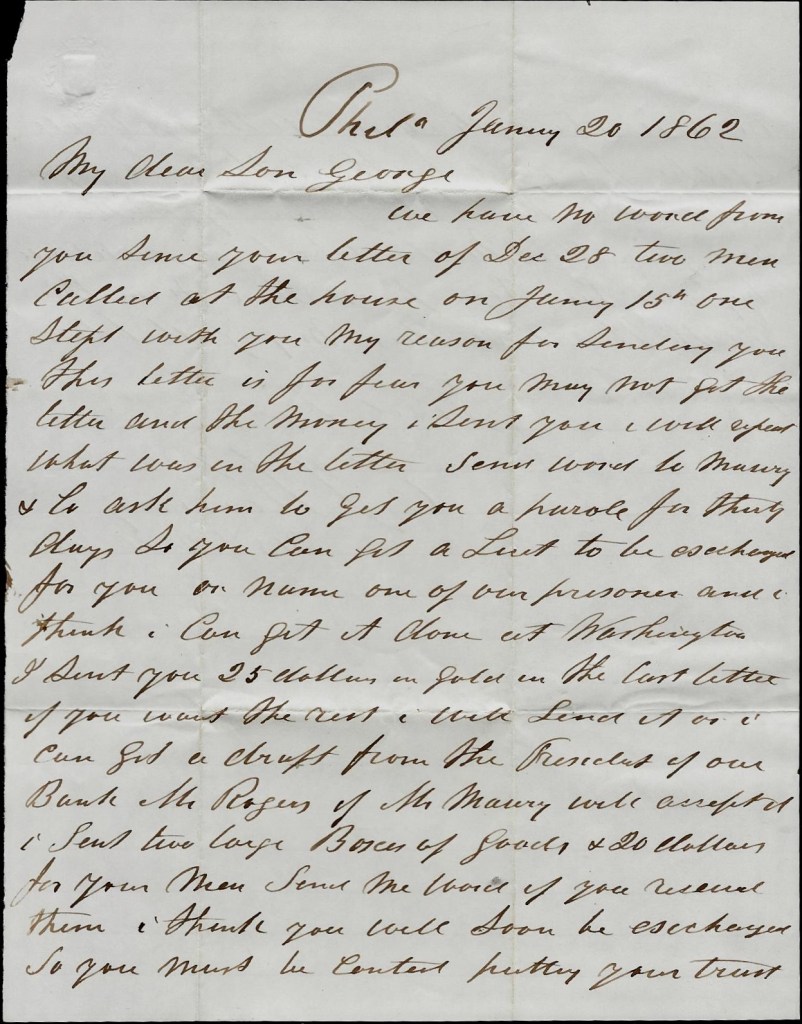 Phila Janury 20 1862
My dear Son George
we have no word from
you since your letter of Dec 28 two men
Called at the house on Janury 15th one
Slept with you My reason for Sending you
this letter is for fear you may not get the
letter and the Money i Sent you i will repeat
what was in the letter Send word to Maury
& Co ask him to get you a parole for thirty
days So you Can get a Lieut to be exchanged
for you or Name one of our prisoner and i
think i Can get it done at Washington
I Sent you 25 dollars in gold in the last letter
if you want the rest i will Send it or i
can get a draft from the President of our
Bank Mr Rogers if Mr Maury will accept it
i Sent two large Boxes of goods & 20 dollars
for your Men Send me word if you received
them i think you will Soon be exchanged
So you Must be Content putting your trust